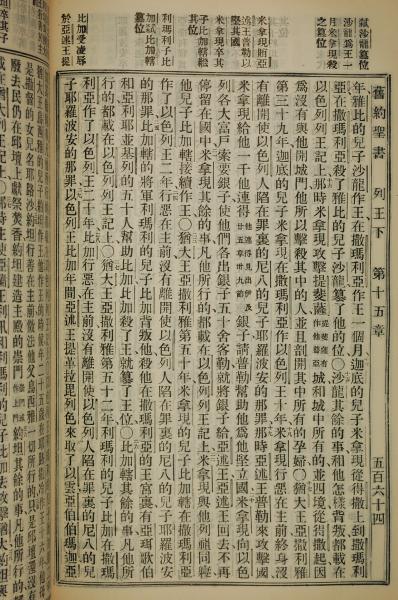 舊約聖書 列王下 第十五章 五百六十四
弒沙龍篡位
沙龍為王一
月米拿現殺
之篡位
米拿現賄亞
述王普勒以
堅其國
米拿現卒其
子比加轄繼
位
利瑪利子比
加弒比加轄
篡位
比加受凌辱
於亞述王提
年雅比的兒子沙龍作王在撒瑪利亞作王一個月迦底的兒子米拿現從得撒上到撒瑪利
亞在撒瑪利亞殺了雅比的兒子沙龍篡了他的位〇沙龍其餘的事和他怎樣背叛都載在
以色列列王記上〇那時米拿現攻擊提斐薩提斐薩有作他普亞城和城中所有的並四境從得撒起因
為沒有與他開城門他所以擊殺其中的人並且剖開其中所有的孕婦〇猶大王亞撒利雅
第三十九年迦底的兒子米拿現在撒瑪利亞作以色列王十年米拿現行惡在主前終身沒
有離開使以色列人陷在罪裏的尼八的兒子耶羅波安的那罪那時亞述王普勒來攻擊國
米拿現給他一千他連得他連得見出伊及廿五章卅九節銀子請普勒幫助他為他堅立國米拿現向以色
列各大富戶索要銀子使他們各出銀子五十舍客勒就將銀子給亞述王亞述王回去不再
停留在國中米拿現其餘的事凡他所行的都載在以色列列王記上米拿現與他列祖同睡
他兒子比加轄接續作王〇猶大王亞撒利雅第五十年米拿現的兒子比加轄在撒瑪利亞
作了以色列王二年行惡在主前沒有離開使以色列人陷在罪裏的尼八的兒子耶羅波安
的那罪比加轄的將軍利瑪利的兒子比加背叛他殺他在撒瑪利亞的王宮裏有亞珥歌伯
和亞利耶並基列的五十人幫助比加比加殺了王就篡了王位〇比加轄其餘的事凡他所
行的都載在以色列列王記上〇猶大王亞撒利雅第五十二年利瑪利的兒子比加在撒瑪
利亞作了以色列王二十年比加行惡在主前沒有離開使以色列人陷在罪裏的尼八的兒
子耶羅波安的那罪以色列王比加年間亞述王提革拉毘列色來取了以雲亞伯伯瑪迦亞